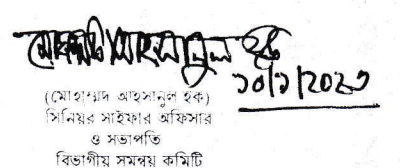 মোহাম্মদ আহসানুল হক
১০/১/২০২৩
(মোহাম্মদ আহসানুল হক)
সিনিয়র সাইফার অফিসার
ও সভাপতি
বিভাগীয় সমন্বয় কমিটি